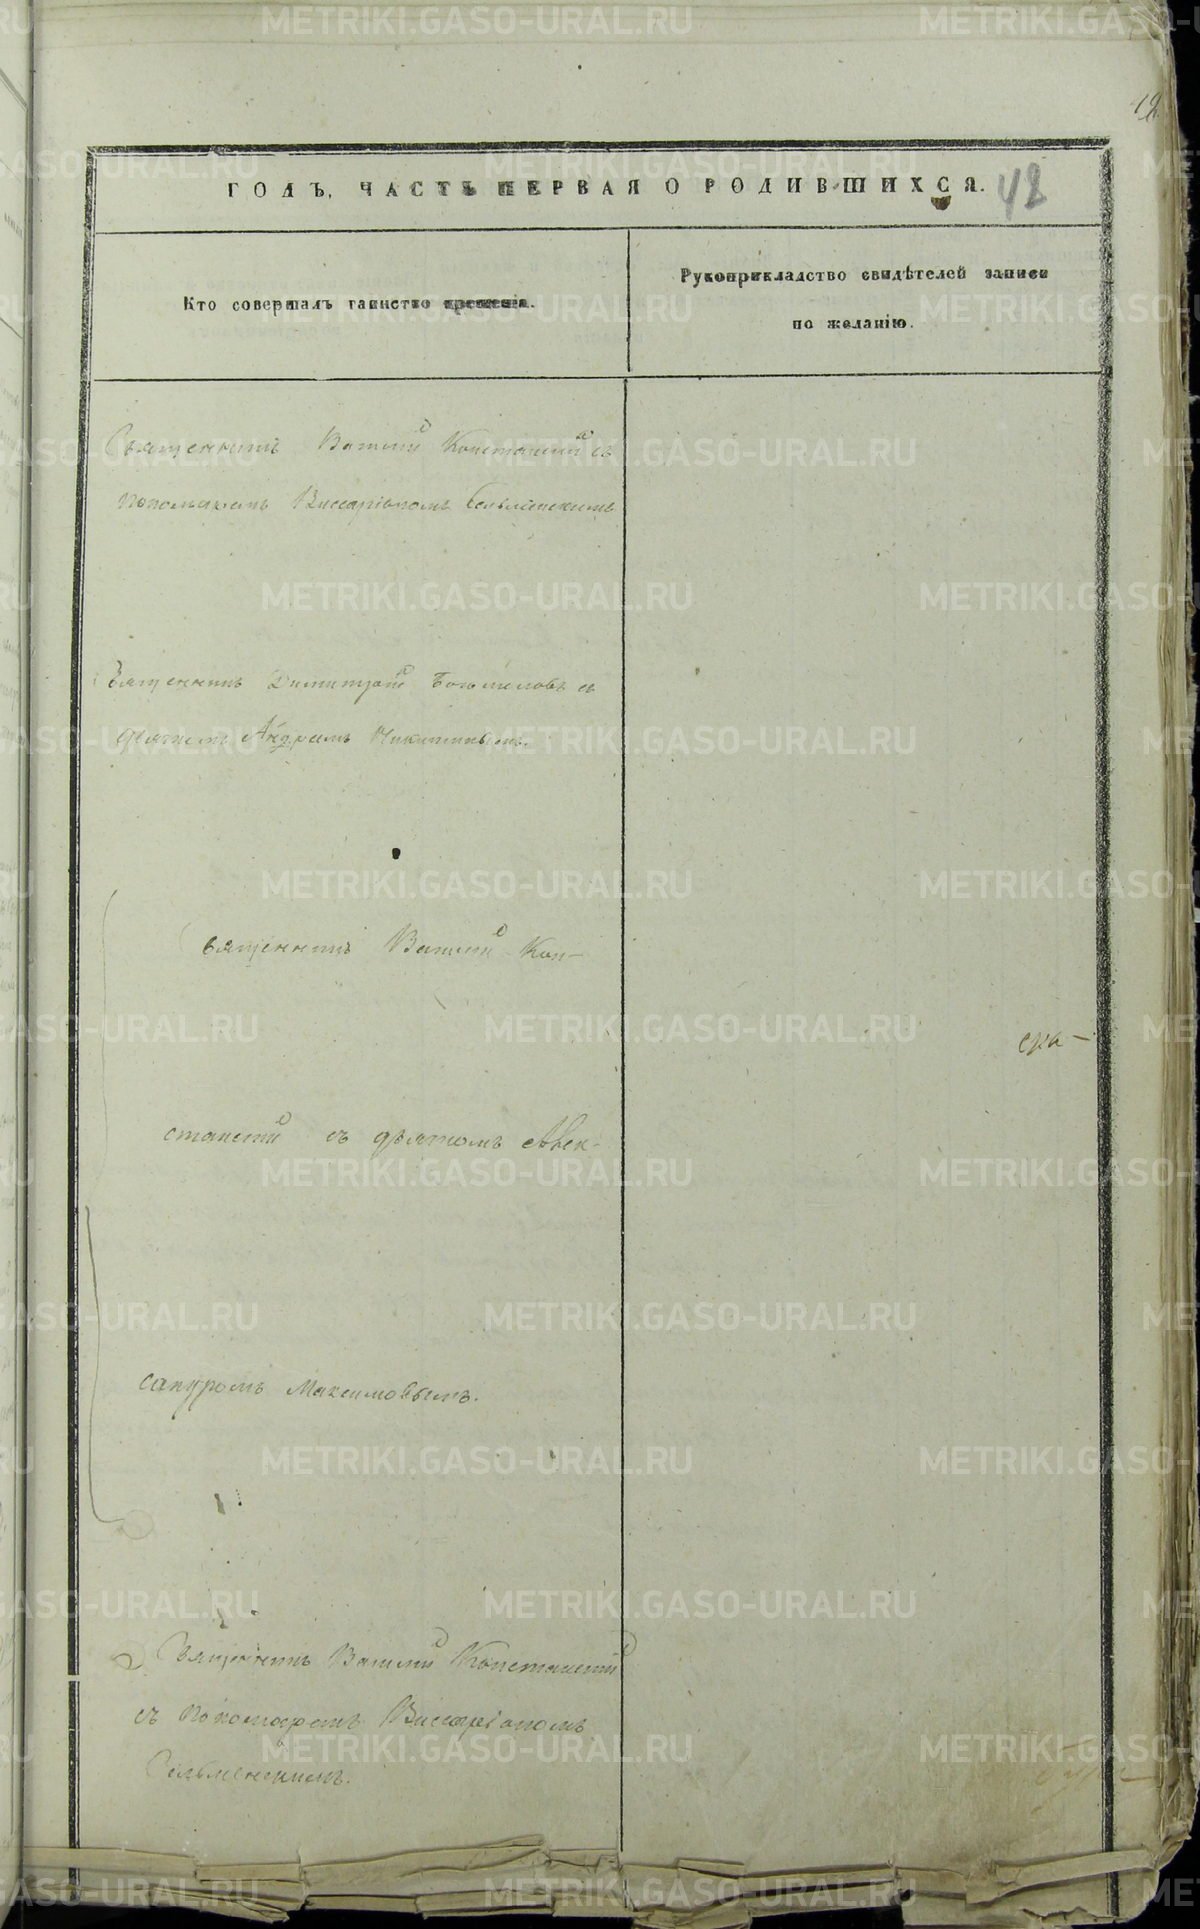 ГОДЪ, ЧАСТЬ ПЕРВАЯ О РОДИВШИХСЯ.
42
Кто совершалъ таинство крещенія.
Рукоприкладство свидѣтелей записи
по желанію.
Священникъ Василій Констанскій съ
пономаремъ Виссаріономъ Сельменскимъ
Священникъ Димитрій Богомоловъ съ
дьячкомъ Андреемъ Никитинымъ.
Священникъ Василій Кон-
станскій съ дьячкомъ Алек-
сандромъ Максимовымъ.
Священникъ Василій Констанскій
съ пономаремъ Виссаріономъ
Сельменскимъ.
METRIKI.GASO-URAL.RU